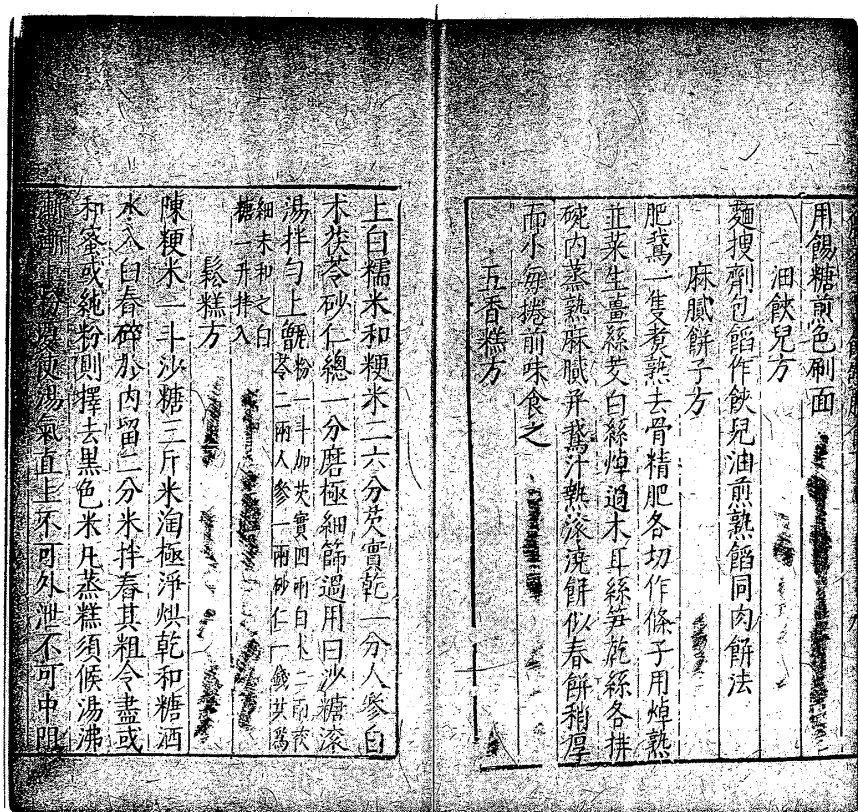 用餳糖煎色刷面
油䬫兒方
麵搜劑包餡作䬫兒油煎熟餡同肉餅法
麻膩餅子方
肥鵞一隻煮熟去骨精肥各切作條子用焯熟
韭菜生薑絲茭白絲焯過木耳絲笋乾絲各排
碗內蒸熟麻膩并鵞汁熱滚澆餅似春餅稍厚
而小每捲前味食之
五香糕方
上白糯米和粳米二六分芡實乾一分人參白
术茯苓砂仁總一分磨極細篩過用白沙糖滚
湯拌勻上甑粉一斗加芡實四兩白术二兩茯
苓二兩人參一兩砂仁一錢共爲
細末和之白
糖一升拌入
鬆糕方
陳粳米一斗沙糖三斤米淘極淨烘乾和糖洒
水入臼舂碎於內留二分米拌舂其粗令盡或
和蜜或純粉則擇去黑色米凡蒸糕須候湯沸
漸漸上粉要使湯氣直上不可外泄不可中阻